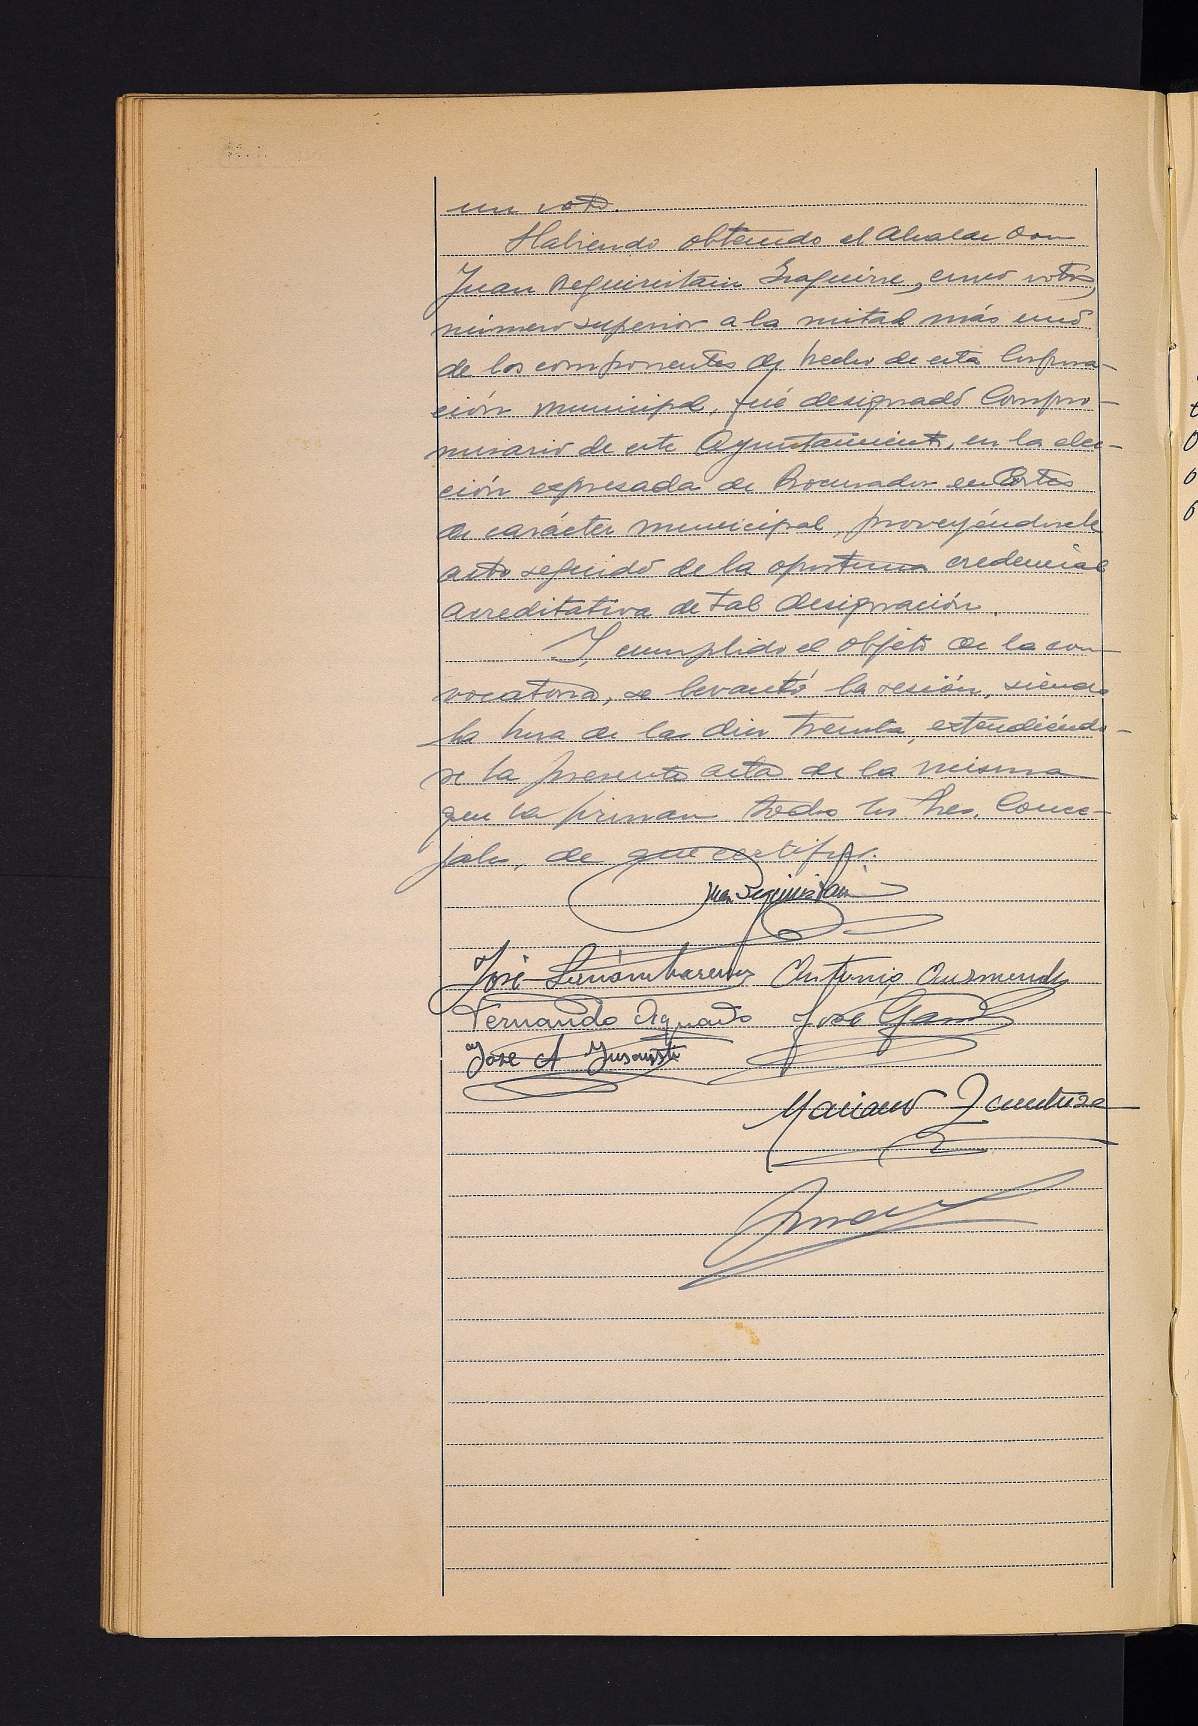 un voto.
Habiendo obtenido el Alcalde Don
Juan Reguisitain Izaguirre, cinco votos,
número superior a la mitad más uno
de los componentes de hecho de esta Corpora-
ción municipal, fué designado Compro-
misario de este Ayuntamiento, en la elec-
ción expresada de Procurador en Cortes
de carácter municipal, proveyéndosele
acto seguido de la oportuna credencial
acreditativa de tal designación.
Y, cumplido el objeto de la con
vocatoria, se levantó la sesión, siendo
la hora de las diez treinta, extendiéndo-
se la presente acta de la misma
que la firman todos los Sres. Conce-
jales, de que certifico.
Juan
José Antonio
Fernando Aguado José
José A
Mariano